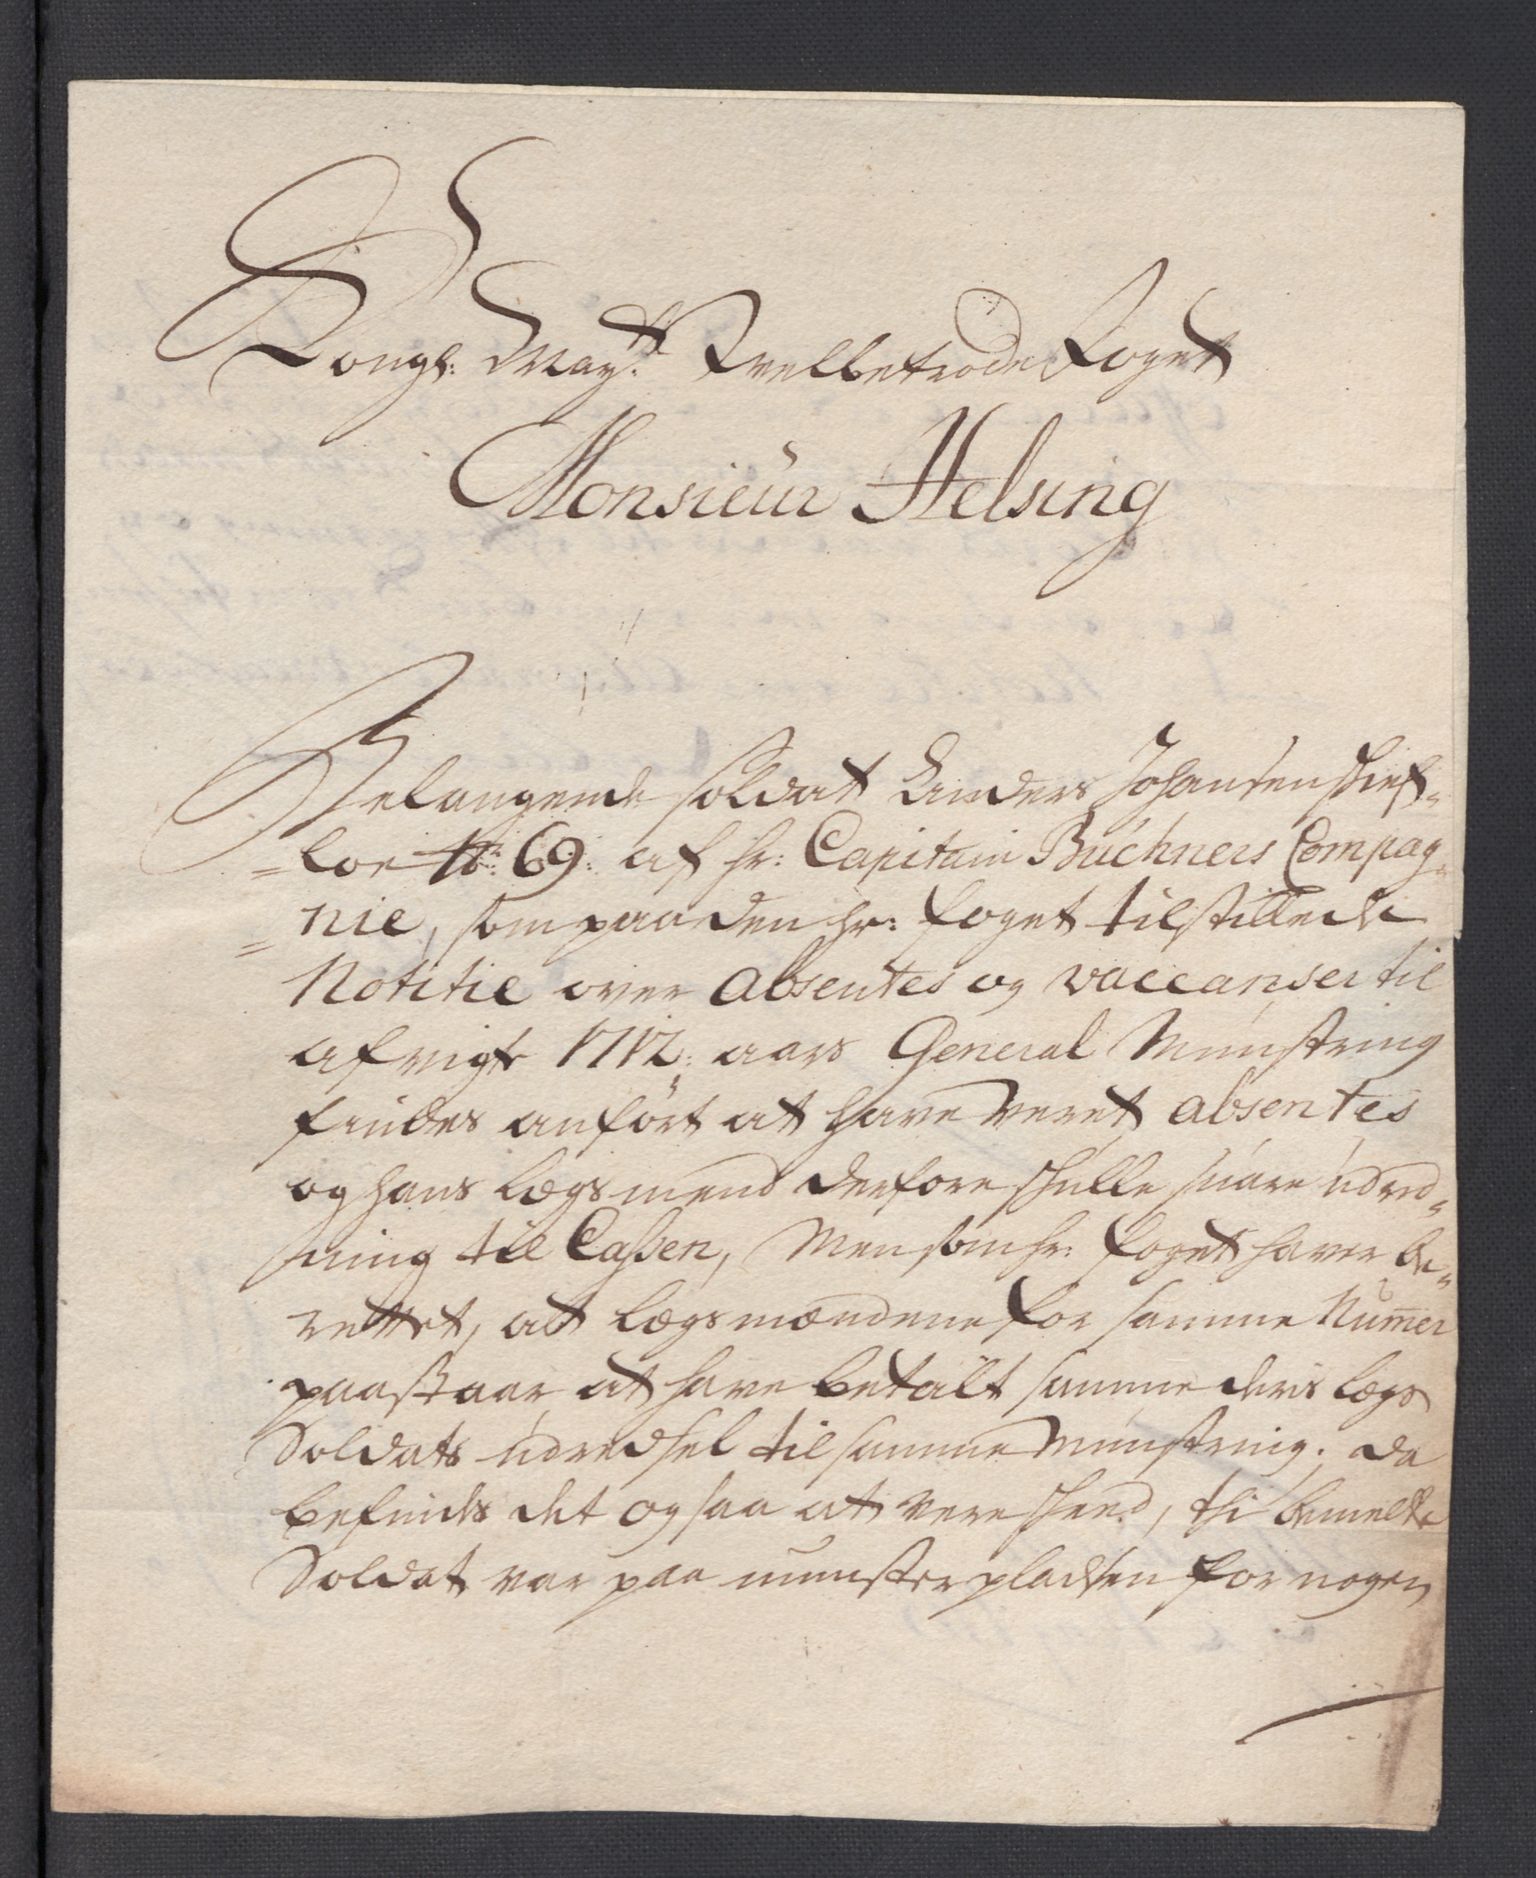 Kongl: May:ts Velbetrode Foget
Monsieur Helsing
Belangende soldat Anders Johansen
=loe No: 69: af hr: Capitain Büchners Compag=
=nie, som paa den hr: foget tilstillede
Notitie over Absentes og vaccanser til
afvigte 1712: aars General Münstring
findes anfört at have veret absentes
og hans lægsmend derfore skulle svare udred=
ning til Cassen, Men som hr: foget haver be=
rettet, at lægsmændene for samme Numer
paastaar at have betalt samme deris lægs
Soldats udredsel til samme münstring. da
befindes det ogsaa at vere skeed, thi bemelte
Soldat var paa munsterpladsen for nogen